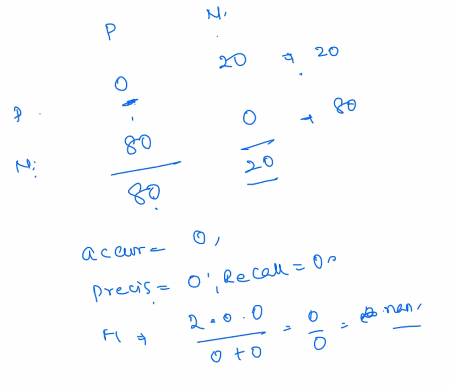 P N
20 → 20
0
P 0 → 80
N 80 20
80
accur = 0,
precis = 0, Recall = 0
F1 → 2.0.0 / 0+0 = 0/0 = nan